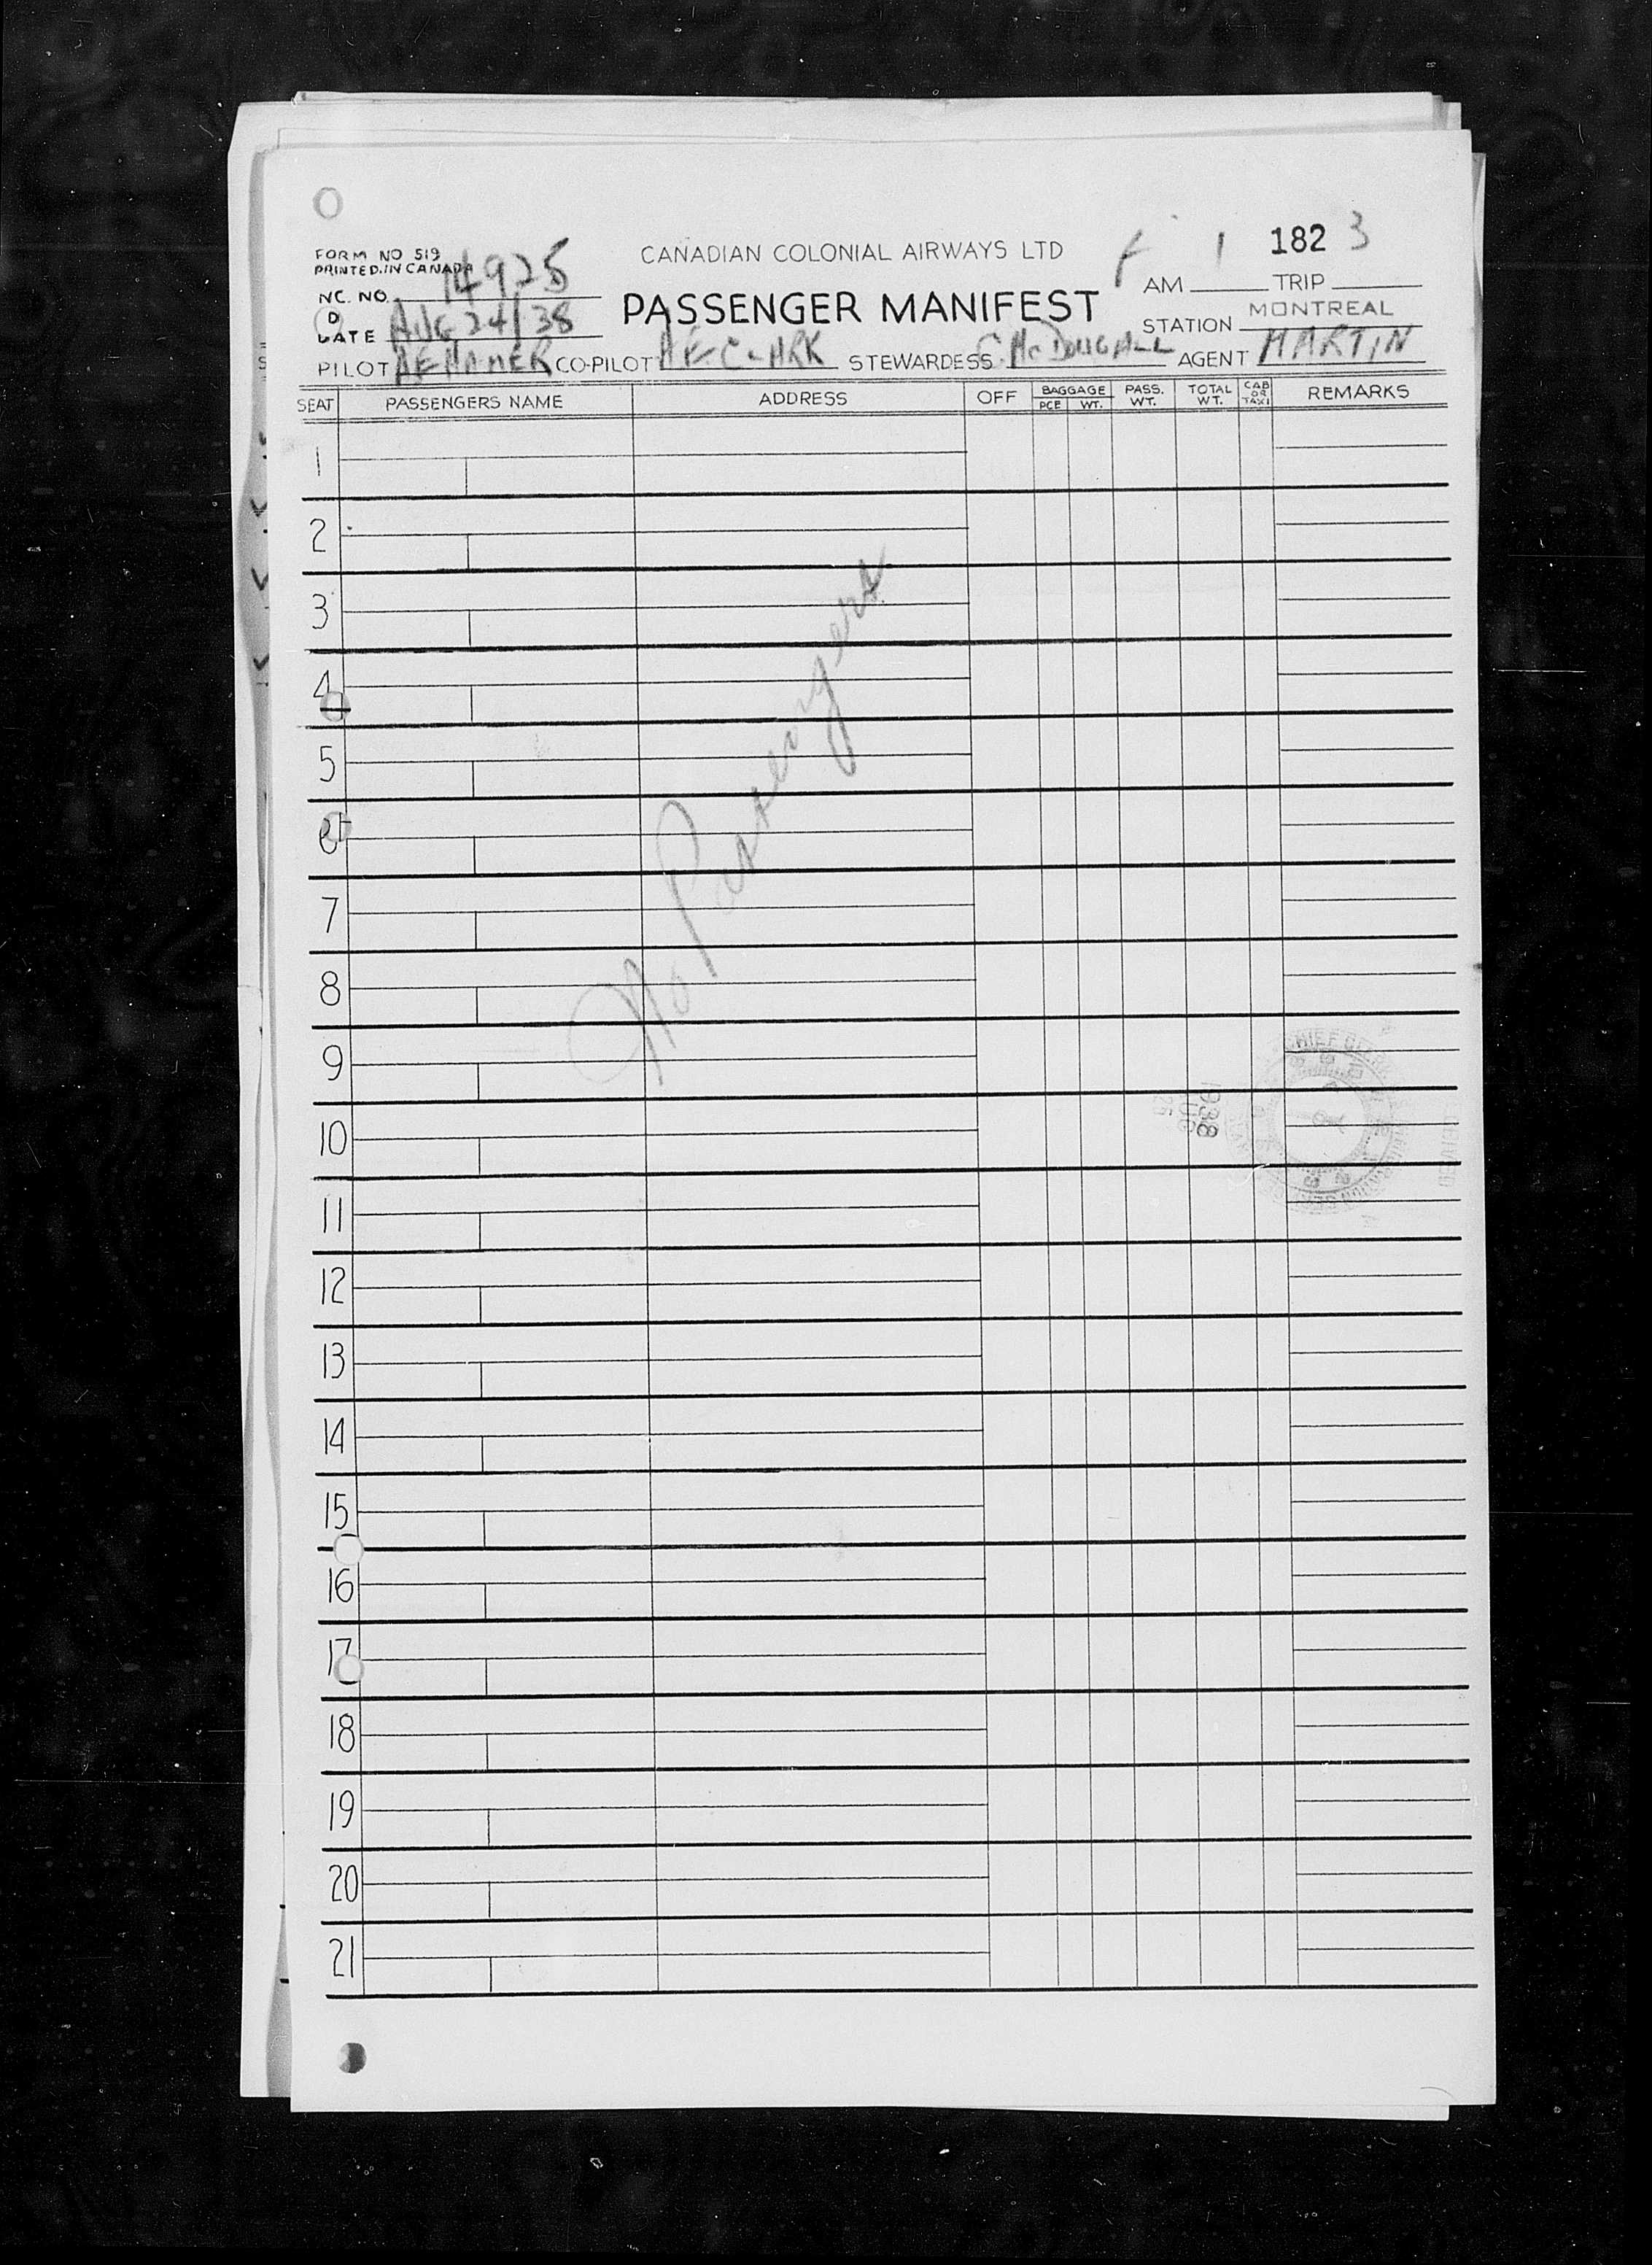 FORM NO 519
PRINTED IN CANADA
CANADIAN COLONIAL AIRWAYS LTD
1 182 3
NC. NO. 14925
PASSENGER MANIFEST
AM TRIP
DATE AUG 24/38
STATION MONTREAL
PILOT AE HAMER CO-PILOT A E CLARK STEWARDESS C. McDOUGALL AGENT MARTIN
SEAT PASSENGERS NAME ADDRESS OFF BAGGAGE PCE WT. PASS. WT. TOTAL WT. CAB OR TAXI REMARKS
1
2
3
4
5
6
7
8
9
10
11
12
13
14
15
16
17
18
19
20
21
No Passengers
1938